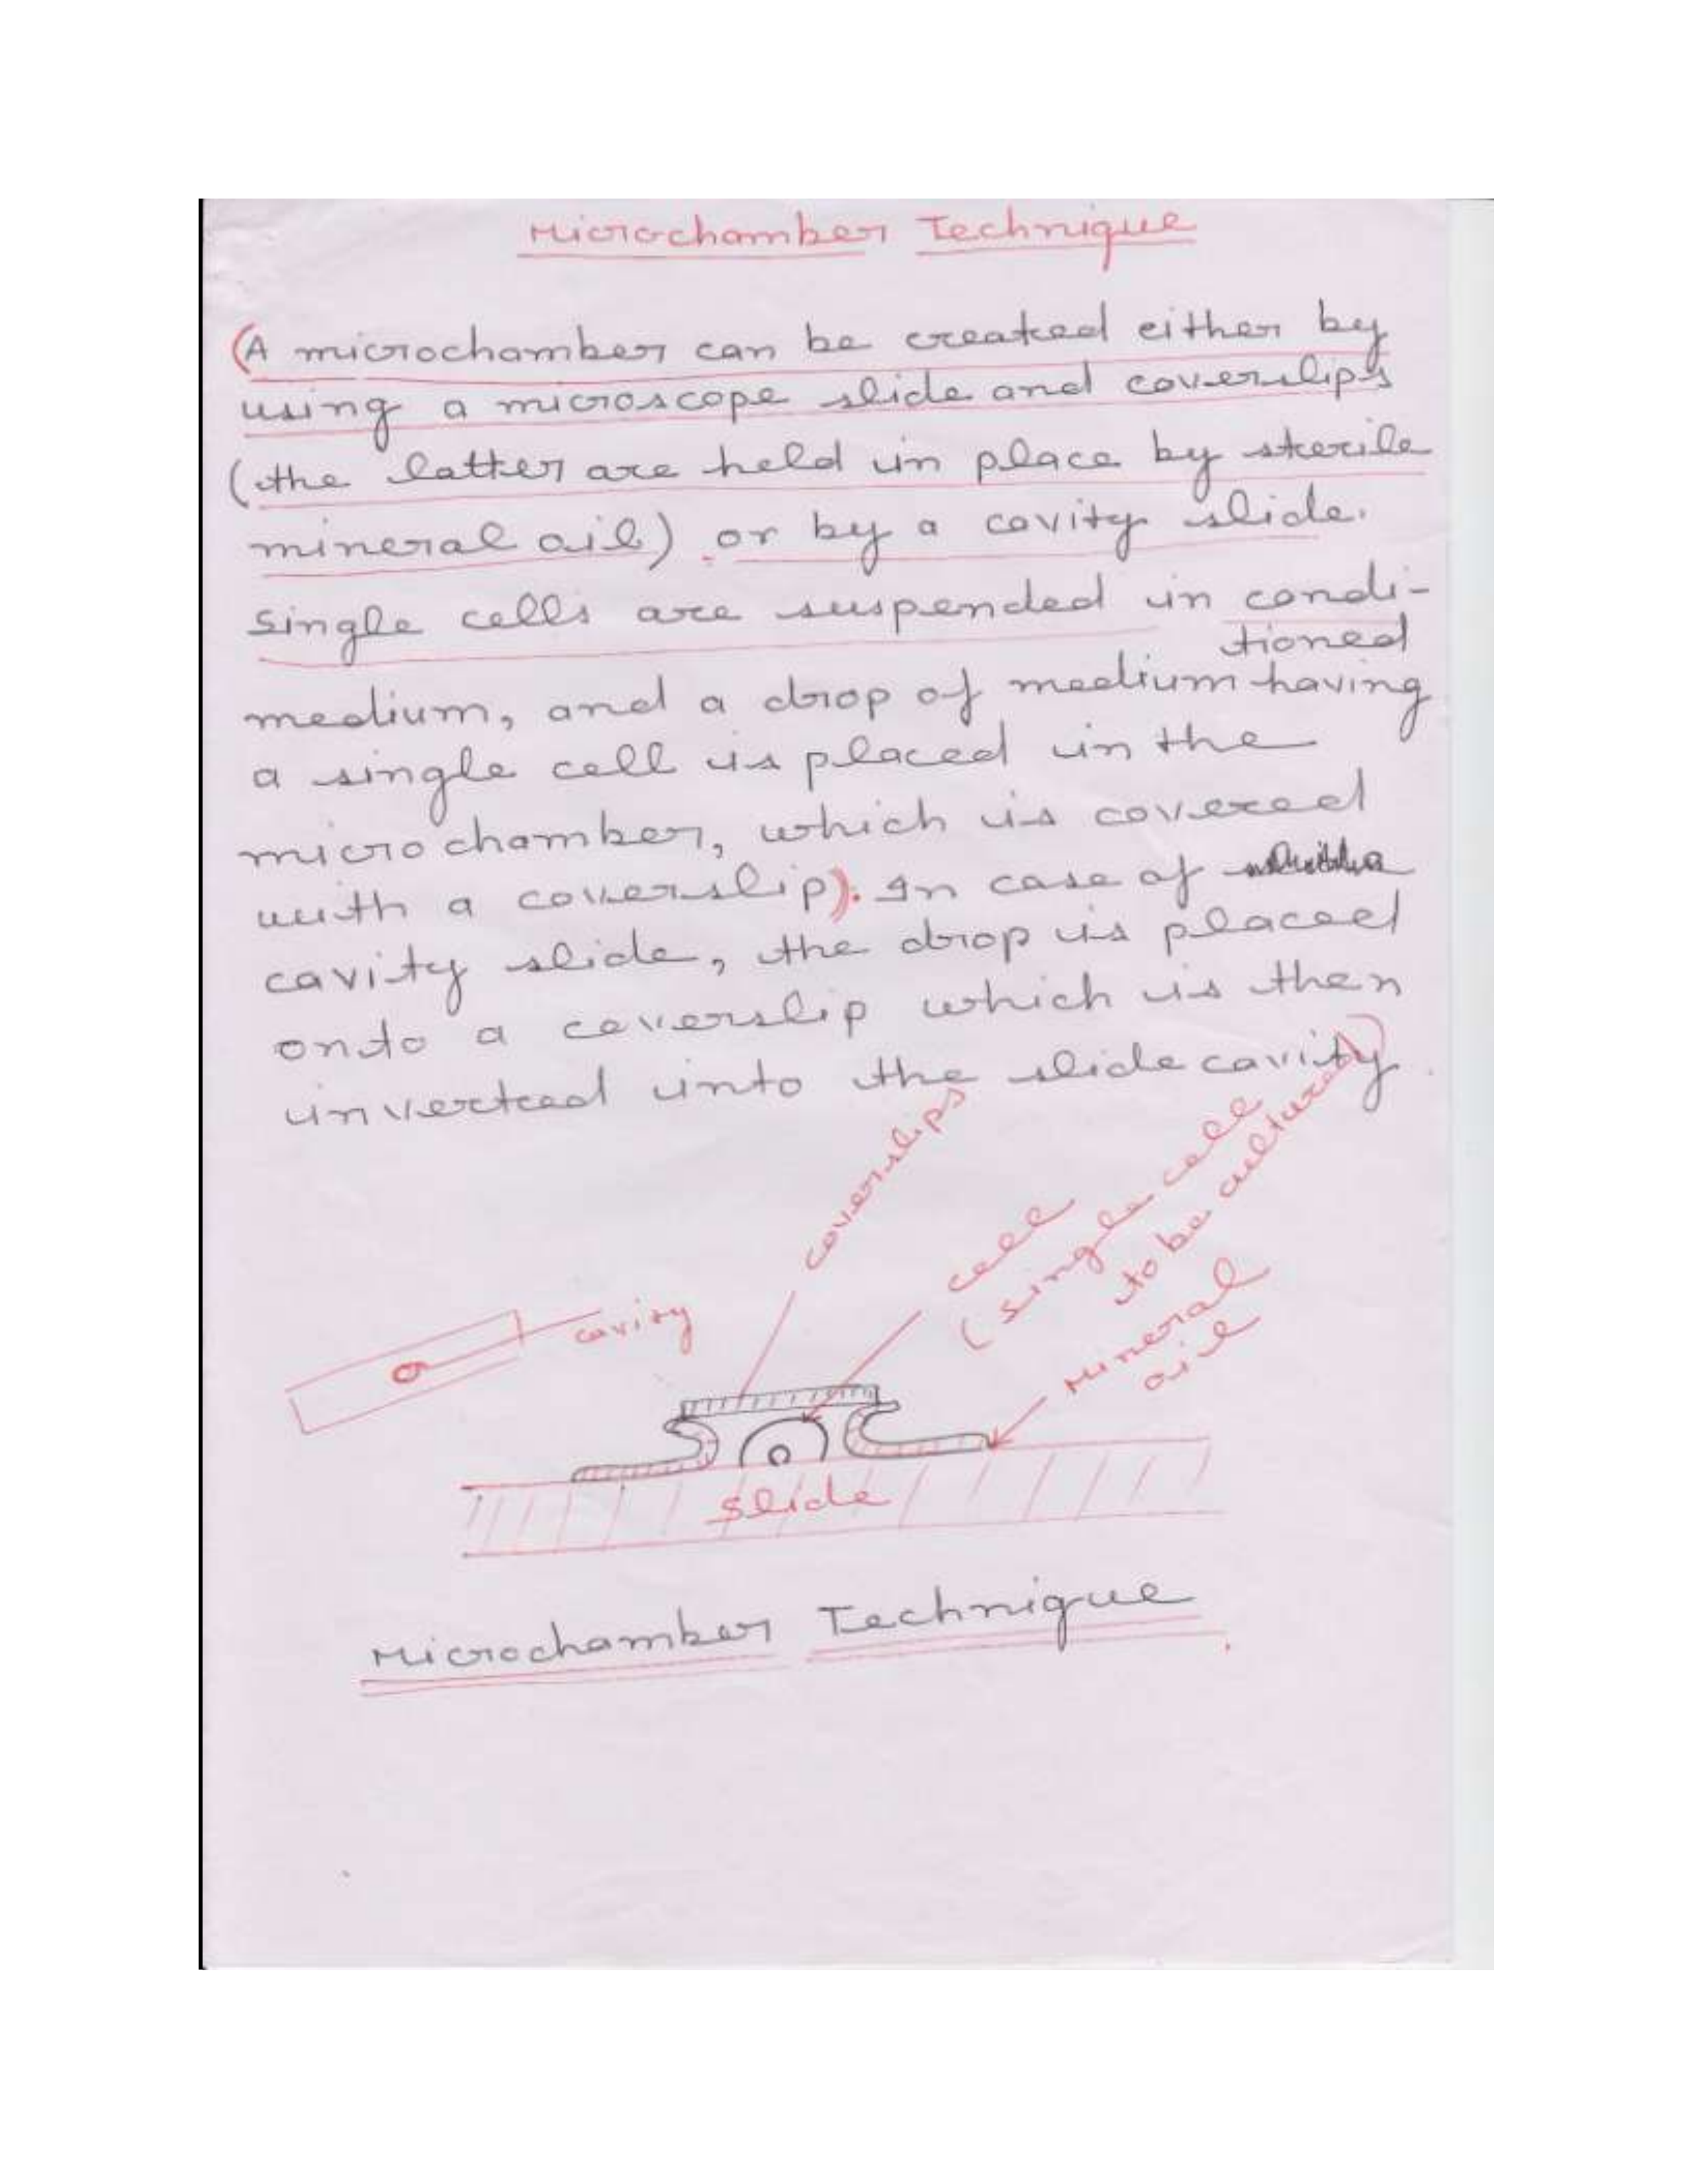 Microchamber Technique
(A microchamber can be created either by
using a microscope slide and coverslips
(the latter are held in place by sterile
mineral oil) or by a cavity slide.
Single cells are suspended in condi-
tioned
medium, and a drop of medium having
a single cell is placed in the
microchamber, which is covered
with a coverslip). In case of
cavity slide, the drop is placed
onto a coverslip which is then
inverted into the slide cavity.
coverslips
cell
(single cell
to be cultured)
Mineral
oil
cavity
Slide
Microchamber Technique